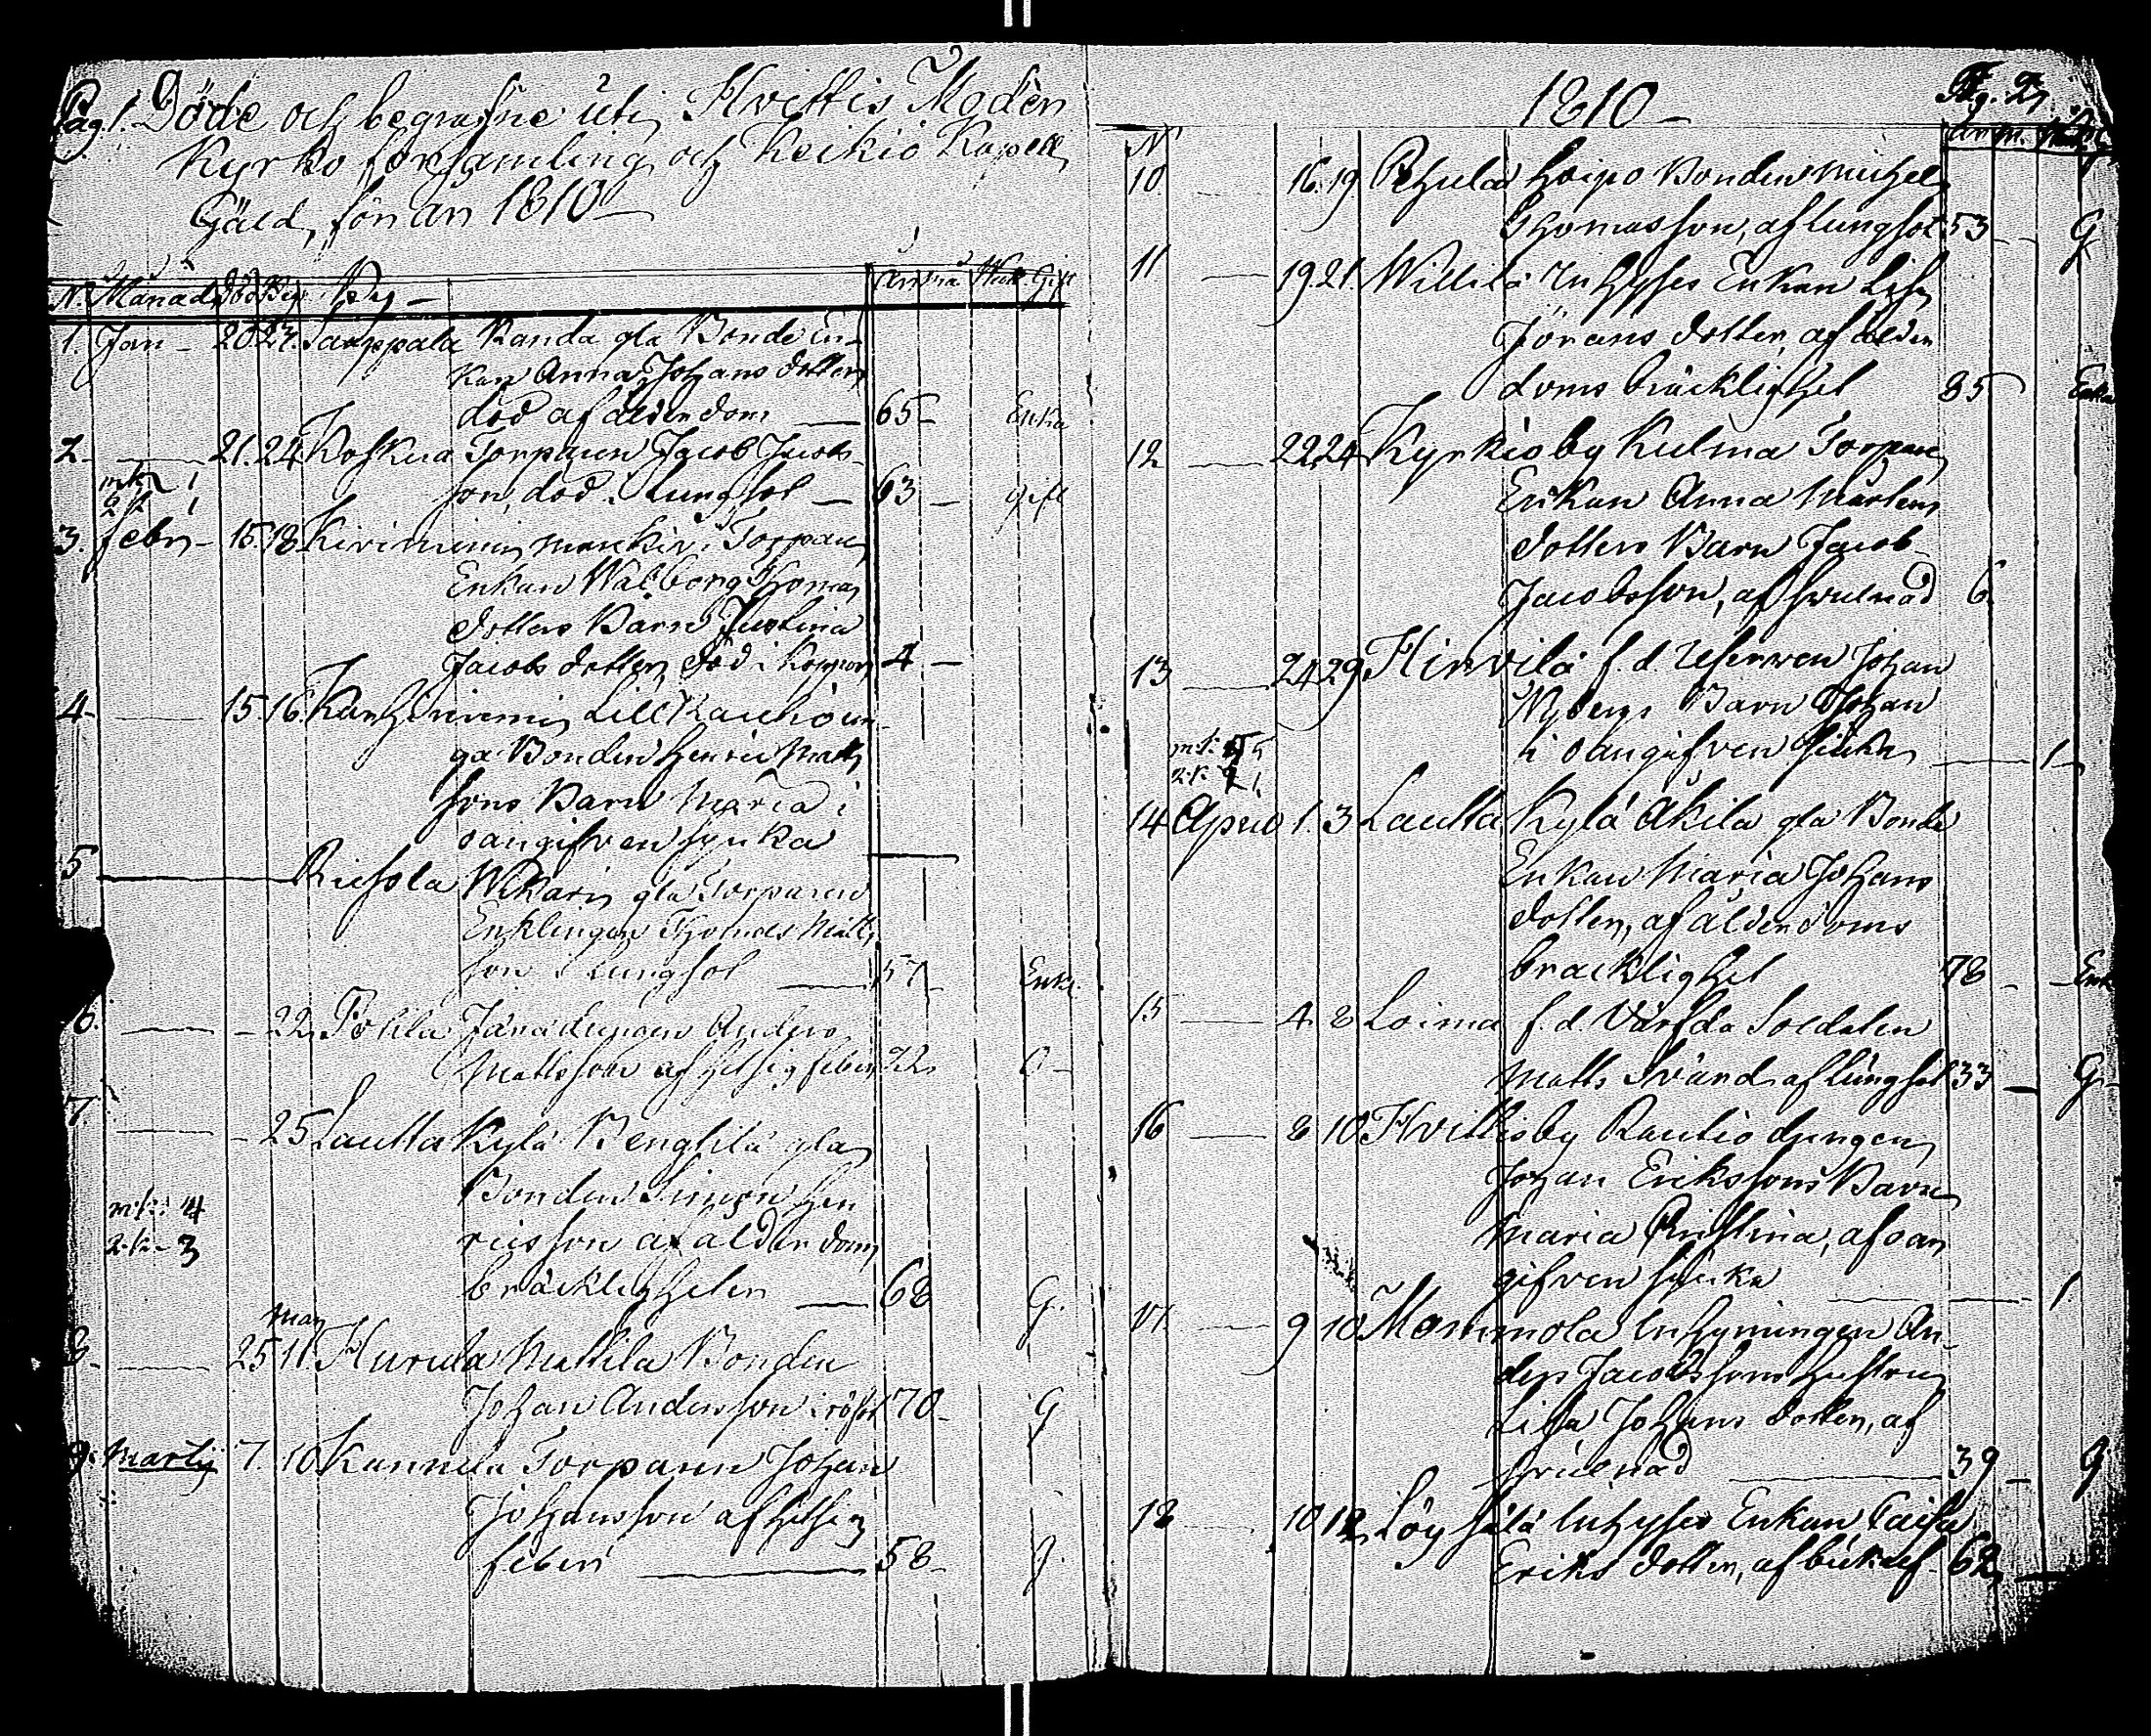 Pag. 1. Döde och begrafne uti Hvittis Moder
Kyrko församling och Keikio Kapell
Gäld, för år 1810
N. Månad Död Beg. By Gift
1. Jan 20. 27. Sampala Kanda gla Bonde En-
kan Anna Johans dotter
död af ålderdom 65 Enka
2. 21. 24. Koskua Torparen Jacob Jacobs
son, död i Lungsot 63 gift
mk 1
2k 1
3. Febr 15. 18. Kiviniemi Torpare
Enkan Walborg Thomas
dotters Barn Justina
Jacobs dotter, död i Koppor 4
4. 15. 16. Karhiniemi Lill Raukio un-
ga Bonden Henric Matts
sons Barn Maria i
oangifven sjuka
5 Riesola Wikari gla Torparen
Enklingen Thomas Matts
son i Lungsot 57 Enkl.
6. 22. Pohla Järadrengen Anders
Mattsson af hetsig feber 22 O
7. 25 Lautta Kylä Bengtilä gla
Bonden Simon Hen
ricsson af ålderdoms
bräckligheter 68 G.
mk 4
2.k. 3
Mar
8. 25 11. Hurula Mattila Bonden
Johan Andersson i rötfeb 70 G
9. Martij 7. 10 Kannela Torparen Johan
Johansson af hetsig
feber 58 g.
1810
Pag. 2.
N
10 16. 19. Pehula hoipo Bonden Michel
Thomasson, af lungsot 53 G
11 19. 21. Willilä Inhyses Enkan Lisa
Jörans dotter, af ålder
doms bräcklighet 85 Enka
12 22. 24 Kyrkioby Kulma Torpare
Enkan Anna Mårtens
dotters Barn Jacob
Jacobsson, af svulnad 6
13 24 29 Hirvilä f. d. Reserven Johan
Nybergs Barn Johan
i oangifven sjuka 1
mk 5
2.k. 1
14 April 1. 3 Lautta Kylä Äkilä gla Bonde
Enkan Maria Johans
dotter, af ålderdoms
bräcklighet 78 Enk
15 4 8 Loima f. d. Värfda Soldaten
Matts Svärd af lungsot 33 G
16 8 10 Hvittisby Rautio drengen
Johan Erikssons Barn
Maria Christina, af oan
gifven sjuka 1
17. 9 10 Mommola Inhysingen An-
ders Jacobssons hustru
Lisa Johans dotter, af
svulnad 39 G
18 10 12 Löysälä Inhyses Enkan Caisa
Eriks dotter, af bukref 62